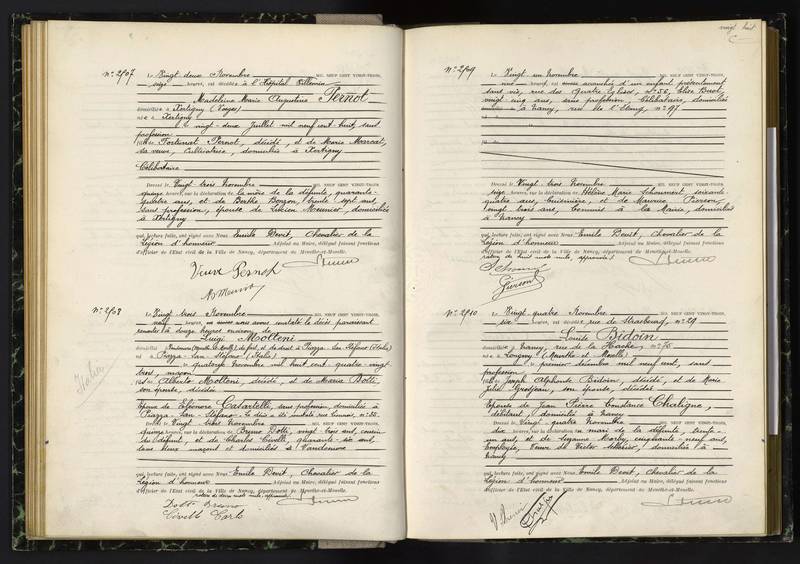 vingt huit
N° 2907
Le Vingt deux Novembre MIL NEUF CENT VINGT-TROIS,
seize heures, est décédée à l'Hôpital Villemin
Madeleine Marie Augustine Pernot
domiciliée à Xertigny (Vosges)
née à Xertigny
le vingt-deux Juillet mil neuf cent huit, sans
profession
fille de Fortunat Pernot, décédé, et de Marie
sa veuve, Cultivatrice, domiciliée à Xertigny
Célibataire
Dressé le Vingt-trois Novembre MIL NEUF CENT VINGT-TROIS,
heures, sur la déclaration de la mère de la défunte, quarante-
quatre ans, et de Berthe trente sept ans,
sans profession, épouse de Lucien Meunier, domiciliées
à Xertigny
qui, lecture faite, ont signé avec Nous Emile Devit, Chevalier de la
Légion d'honneur Adjoint au Maire, délégué faisant fonctions
d'Officier de l'Etat civil de la Ville de Nancy, département de Meurthe-et-Moselle.
Veuve Pernot
N° 2908
Le Vingt trois Novembre MIL NEUF CENT VINGT-TROIS,
neuf heures, nous avons constaté le décès paraissant
remonter à douze heures environ, de
Luigi Molteni
domicilié à Vandoeuvre de fait, et de droit à Piazza San Stefano (Italie)
né à Piazza San Stefano (Italie)
le quatorze Novembre mil huit cent quatre-vingt
trois, maçon
fils de Alberto Molteni, décédé, et de Maria Dotti,
son épouse, décédée
Epoux de Eléonore Casartelli, sans profession, domiciliée à
Piazza San Stefano. Le décès a été constaté rue
Dressé le Vingt trois Novembre MIL NEUF CENT VINGT-TROIS,
quinze heures, sur la déclaration de Bruno Dotti, vingt trois ans, cousin
du défunt, et de Charles Civelli, quarante-six ans,
tous deux maçons et domiciliés à Vandoeuvre
qui, lecture faite, ont signé avec Nous Emile Devit, Chevalier de la
Légion d'honneur Adjoint au Maire, délégué faisant fonctions
d'Officier de l'Etat civil de la Ville de Nancy, département de Meurthe-et-Moselle.
Dotti Bruno
Civelli Carlo
Italie
N° 2909
Le Vingt-un Novembre MIL NEUF CENT VINGT-TROIS,
une heures, est accouchée d'un enfant présentement
sans vie, rue des Quatre Eglises, n° 52, Elise
vingt-cinq ans, sans profession, Célibataire, domiciliée
à Nancy, rue de l'Etang, n° 97
Dressé le Vingt-trois Novembre MIL NEUF CENT VINGT-TROIS,
seize heures, sur la déclaration de Hélène Marie soixante-
quatre ans, et de Maurice Pierson,
vingt trois ans, Commis à la Mairie, domiciliés
à Nancy
qui, lecture faite, ont signé avec Nous Emile Devit, Chevalier de la
Légion d'honneur Adjoint au Maire, délégué faisant fonctions
d'Officier de l'Etat civil de la Ville de Nancy, département de Meurthe-et-Moselle.
rature de huit mots nuls, approuvée
N° 2910
Le Vingt quatre Novembre MIL NEUF CENT VINGT-TROIS,
six heures, est décédée rue de Strasbourg, n° 29
Louise Bidoin
domiciliée à Nancy, rue de la Hache, n° 76
née à Longwy (Meurthe et Moselle)
le premier décembre mil neuf cent, sans
profession
fille de Joseph Alphonse Bidoin, décédé, et de Marie
Grosjean, son épouse, décédée
Epouse de Jean Pierre Constance Chaligne,
débitant, domicilié à Nancy
Dressé le Vingt quatre Novembre MIL NEUF CENT VINGT-TROIS,
dix heures, sur la déclaration du mari de la défunte, trente-
un ans, et de Suzanne cinquante-neuf ans,
Employée, Veuve de Victor domiciliée à
Nancy
qui, lecture faite, ont signé avec Nous Emile Devit, Chevalier de la
Légion d'honneur Adjoint au Maire, délégué faisant fonctions
d'Officier de l'Etat civil de la Ville de Nancy, département de Meurthe-et-Moselle.